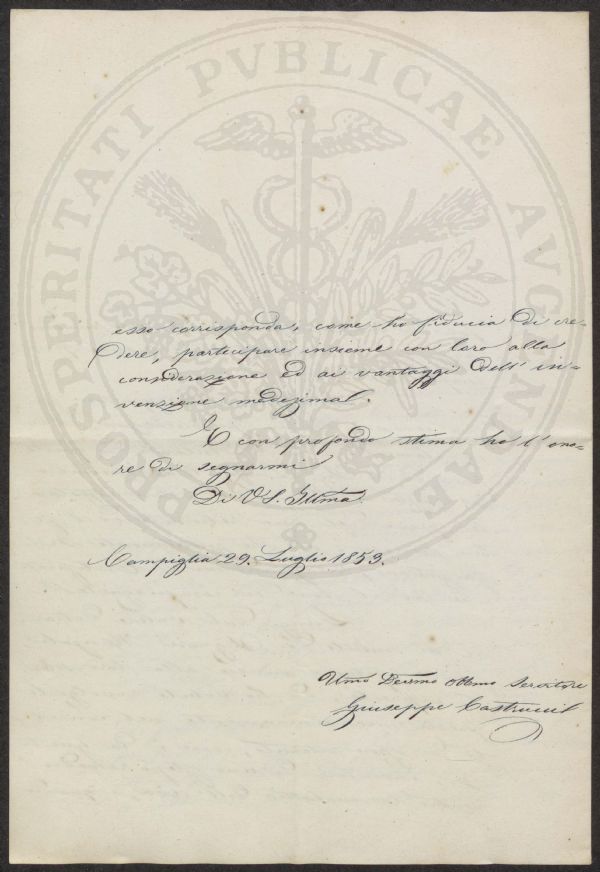 PROSPERITATI PVBLICAE AVGENDAE
esso corrisponda, come ho fiducia di cre-
dere, partecipare insieme con loro alla
considerazione ed ai vantaggi dell' in-
venzione medezima.
E con profonda stima ho l' ono-
re di segnarmi
Di V. S. Illma
Campiglia 29. Luglio 1853.
Umo Devmo Obbmo Servitore
Giuseppe